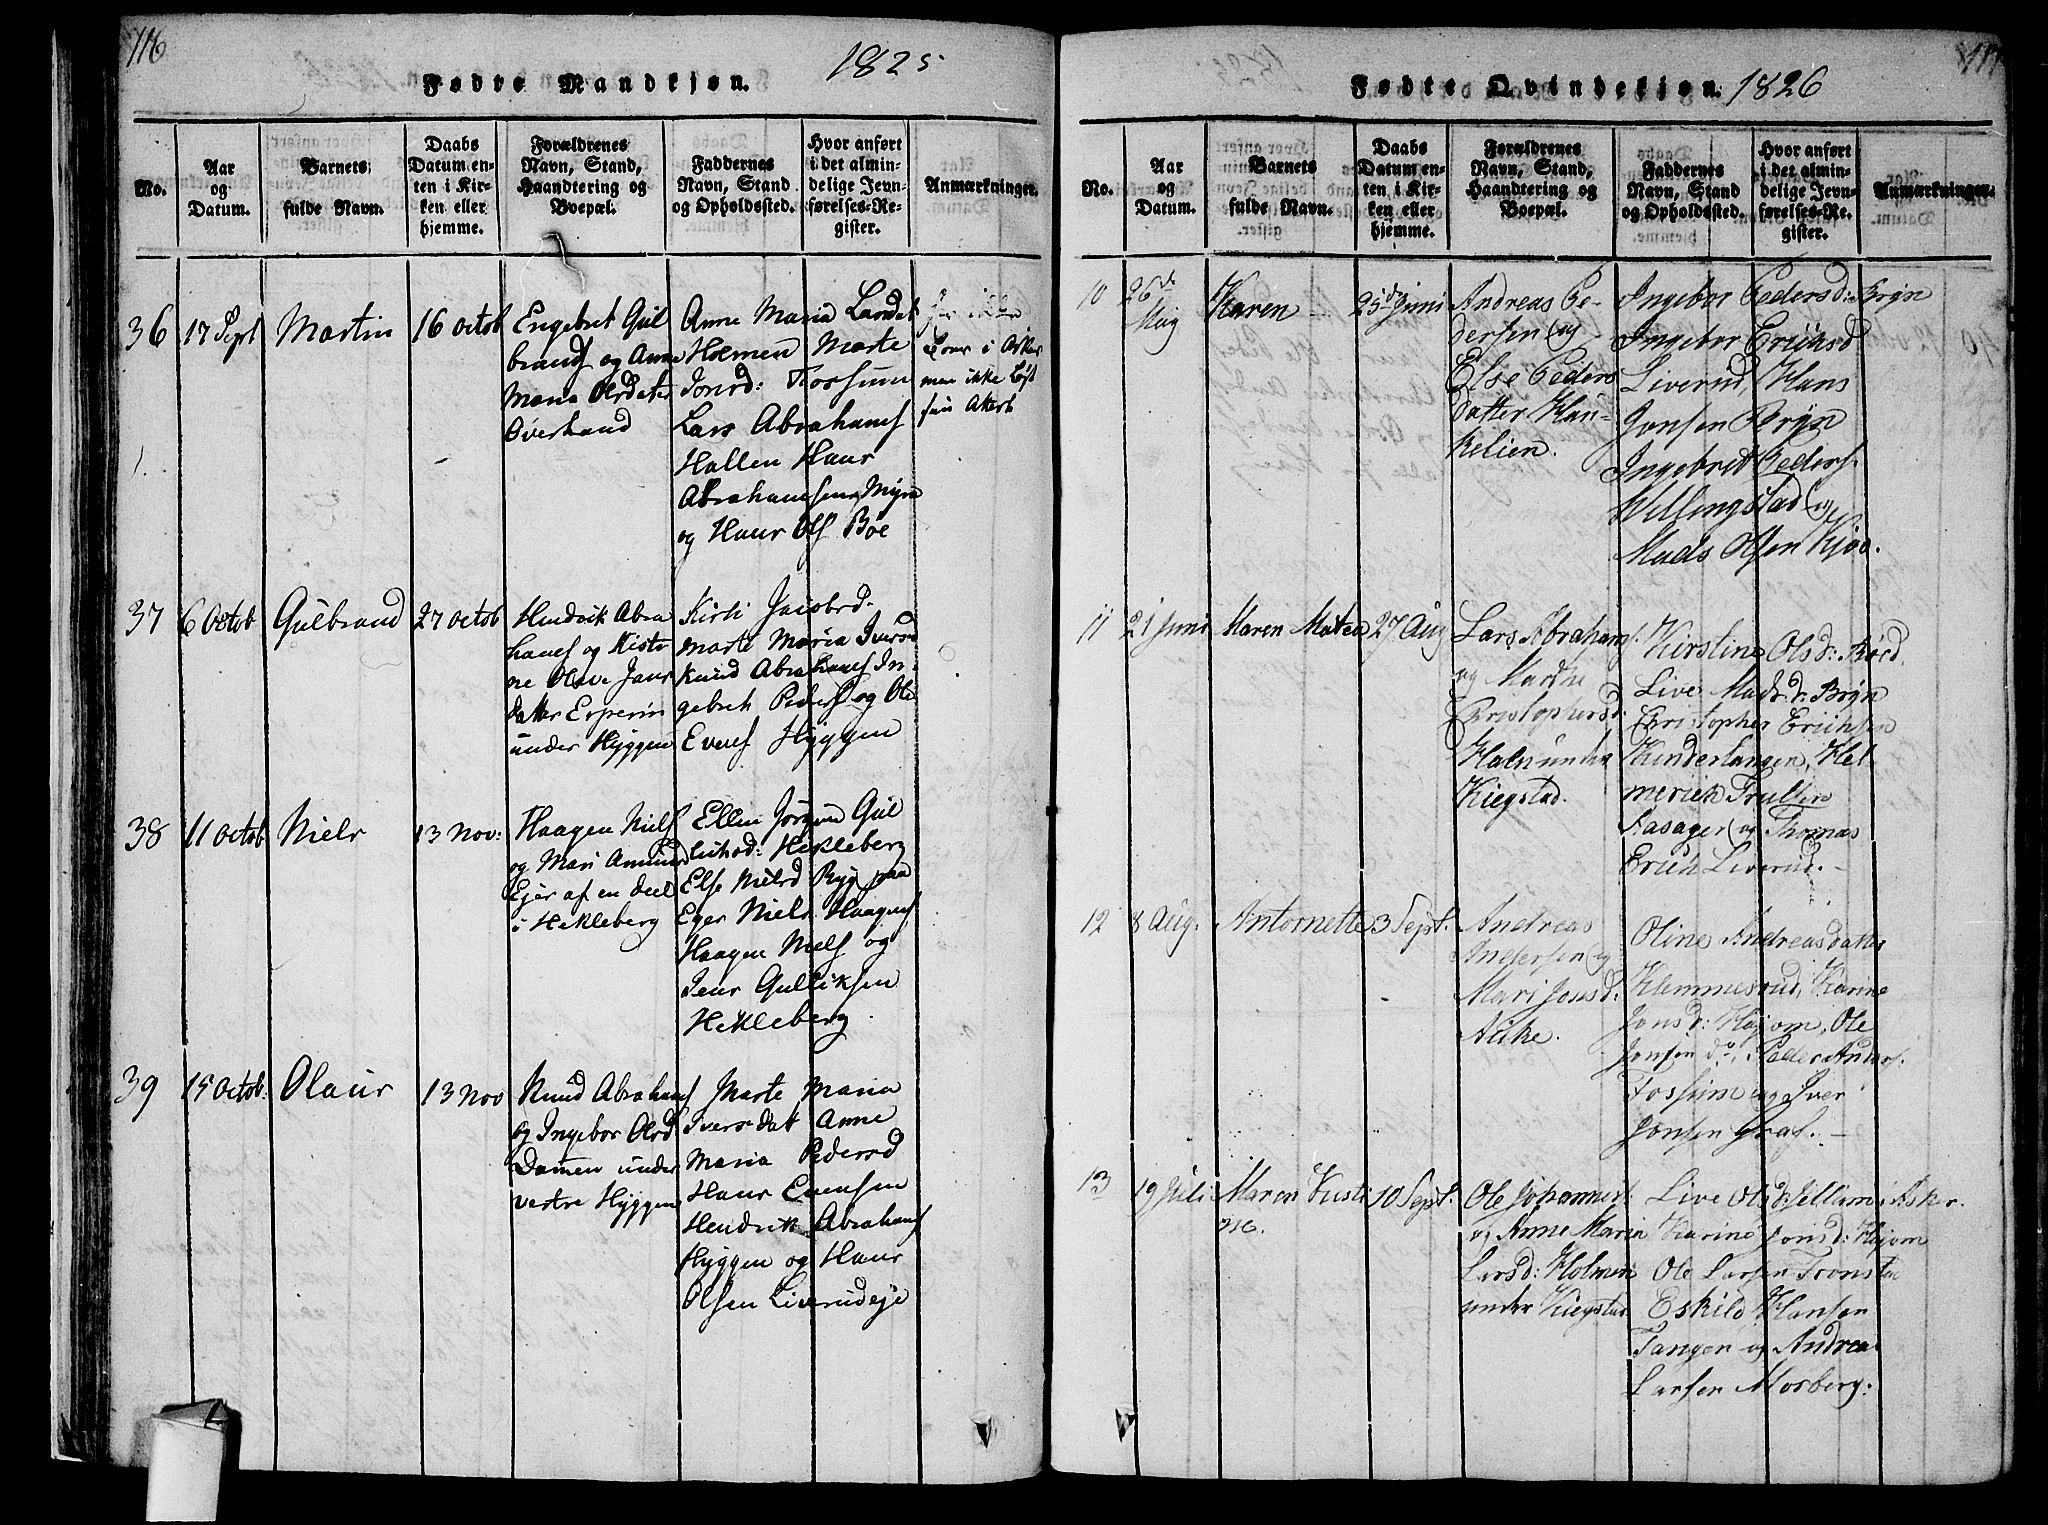 116
1825
Fødte Mandkjøn.
No.
Aar og Datum.
Barnets fulde Navn.
Daabs Datum enten i Kirken eller hjemme.
Forældrenes Navn, Stand, Haandtering og Boepæl.
Faddernes Navn, Stand og Opholdssted.
Hvor anført i det almindelige Jevnførelses-Register.
Anmærkninger.
36
17 Sept
Martin
16 Octob
Engebret Gul
brands og Anne
Maria Olsdater
Øverland
Anne Maria Larsdat
Holmen Marte
Jonsd: Fossum
Lars Abrahams
Hallen Hans
Abrahamsen Myra
og Hans Ols Böe
i Asker
men ikke
37
6 Octob
Gulbrand
27 Octob
Hendrik Abra
hams og Kisti
ne Olave Jans
datter Esperin
under Hyggen
Kirsti Jacobsd.
Marte Maria Iversd
Knud Abrahams In-
gebret Peders og Ole
Evens Hyggen
38
11 Octob
Niels
13 Nov:
Haagen Niels
og Mari Amunds
Ejer af en deel
i Hekleberg
Ellen Jörgens Gul
liksd: Hekleberg
Else Nielsd Byg paa
Eger Niels Haagens
Haagen Niels og
Jens Gulliksen
Hekleberg.
39
15 Octob:
Olaus
13 Nov
Knud Abrahams
og Ingebor Olsd
Damen under
vestre Hyggen
Marte Maria
Iversdat Anne
Maria Pedersd
Hans Evensen
Hendrik Abrahams
Hyggen og Hans
Olsen Liverudeje
117
Fødte Qvindekjøn. 1826
No.
Aar og Datum.
Barnets fulde Navn.
Daabs Datum enten i Kirken eller hjemme.
Forældrenes Navn, Stand, Haandtering og Boepæl.
Faddernes Navn, Stand og Opholdssted.
Hvor anført i det almindelige Jevnførelses-Register.
Anmærkninger.
10
26de
Maij
Karen
25de Juni
Andreas Pe-
dersen og
Else Peders
datter Hau-
kelien.
Ingebor Pedersd: Bryn
Ingebor Erichsd
Liverud, Hans
Jonsen Bryn
Ingebret Peders.
Willingstad og
Mads Olsen Kjoe.
11
21 Juni
Maren Matea
27 Aug
Lars Abrahams.
og Marthe
Christophersd.
Hals under
Kiegstad.
Kirstine Olsd: Böed
Live Madsd: Bryn
Christopher Erichsen
Kinderlangen, Hel-
merich Trulsen
Fasager og Thomas
Erich Liverud.
12
8 Aug.
Antornette
3 Sept.
Andreas
Andersen og
Mari Jonsd:
Auke.
Oline Andreasdatter
Klemmesrud, Karine
Jonsd: Högom, Ole
Jonsen do, Peder Anders.
Fossum og Iver
Jonsen Graf.
13
19 Juli
Maren Kisti
ne.
10 Sept.
Ole Johannes.
og Anne Maria
Larsd: Holmen
under Kiegstad
Live Olsd Jellum i Asker.
Karine Jonsd: Högom
Ole Larsen Fronsten
Eskild Hansen
Tangen og Andreas
Larsen Morberg.